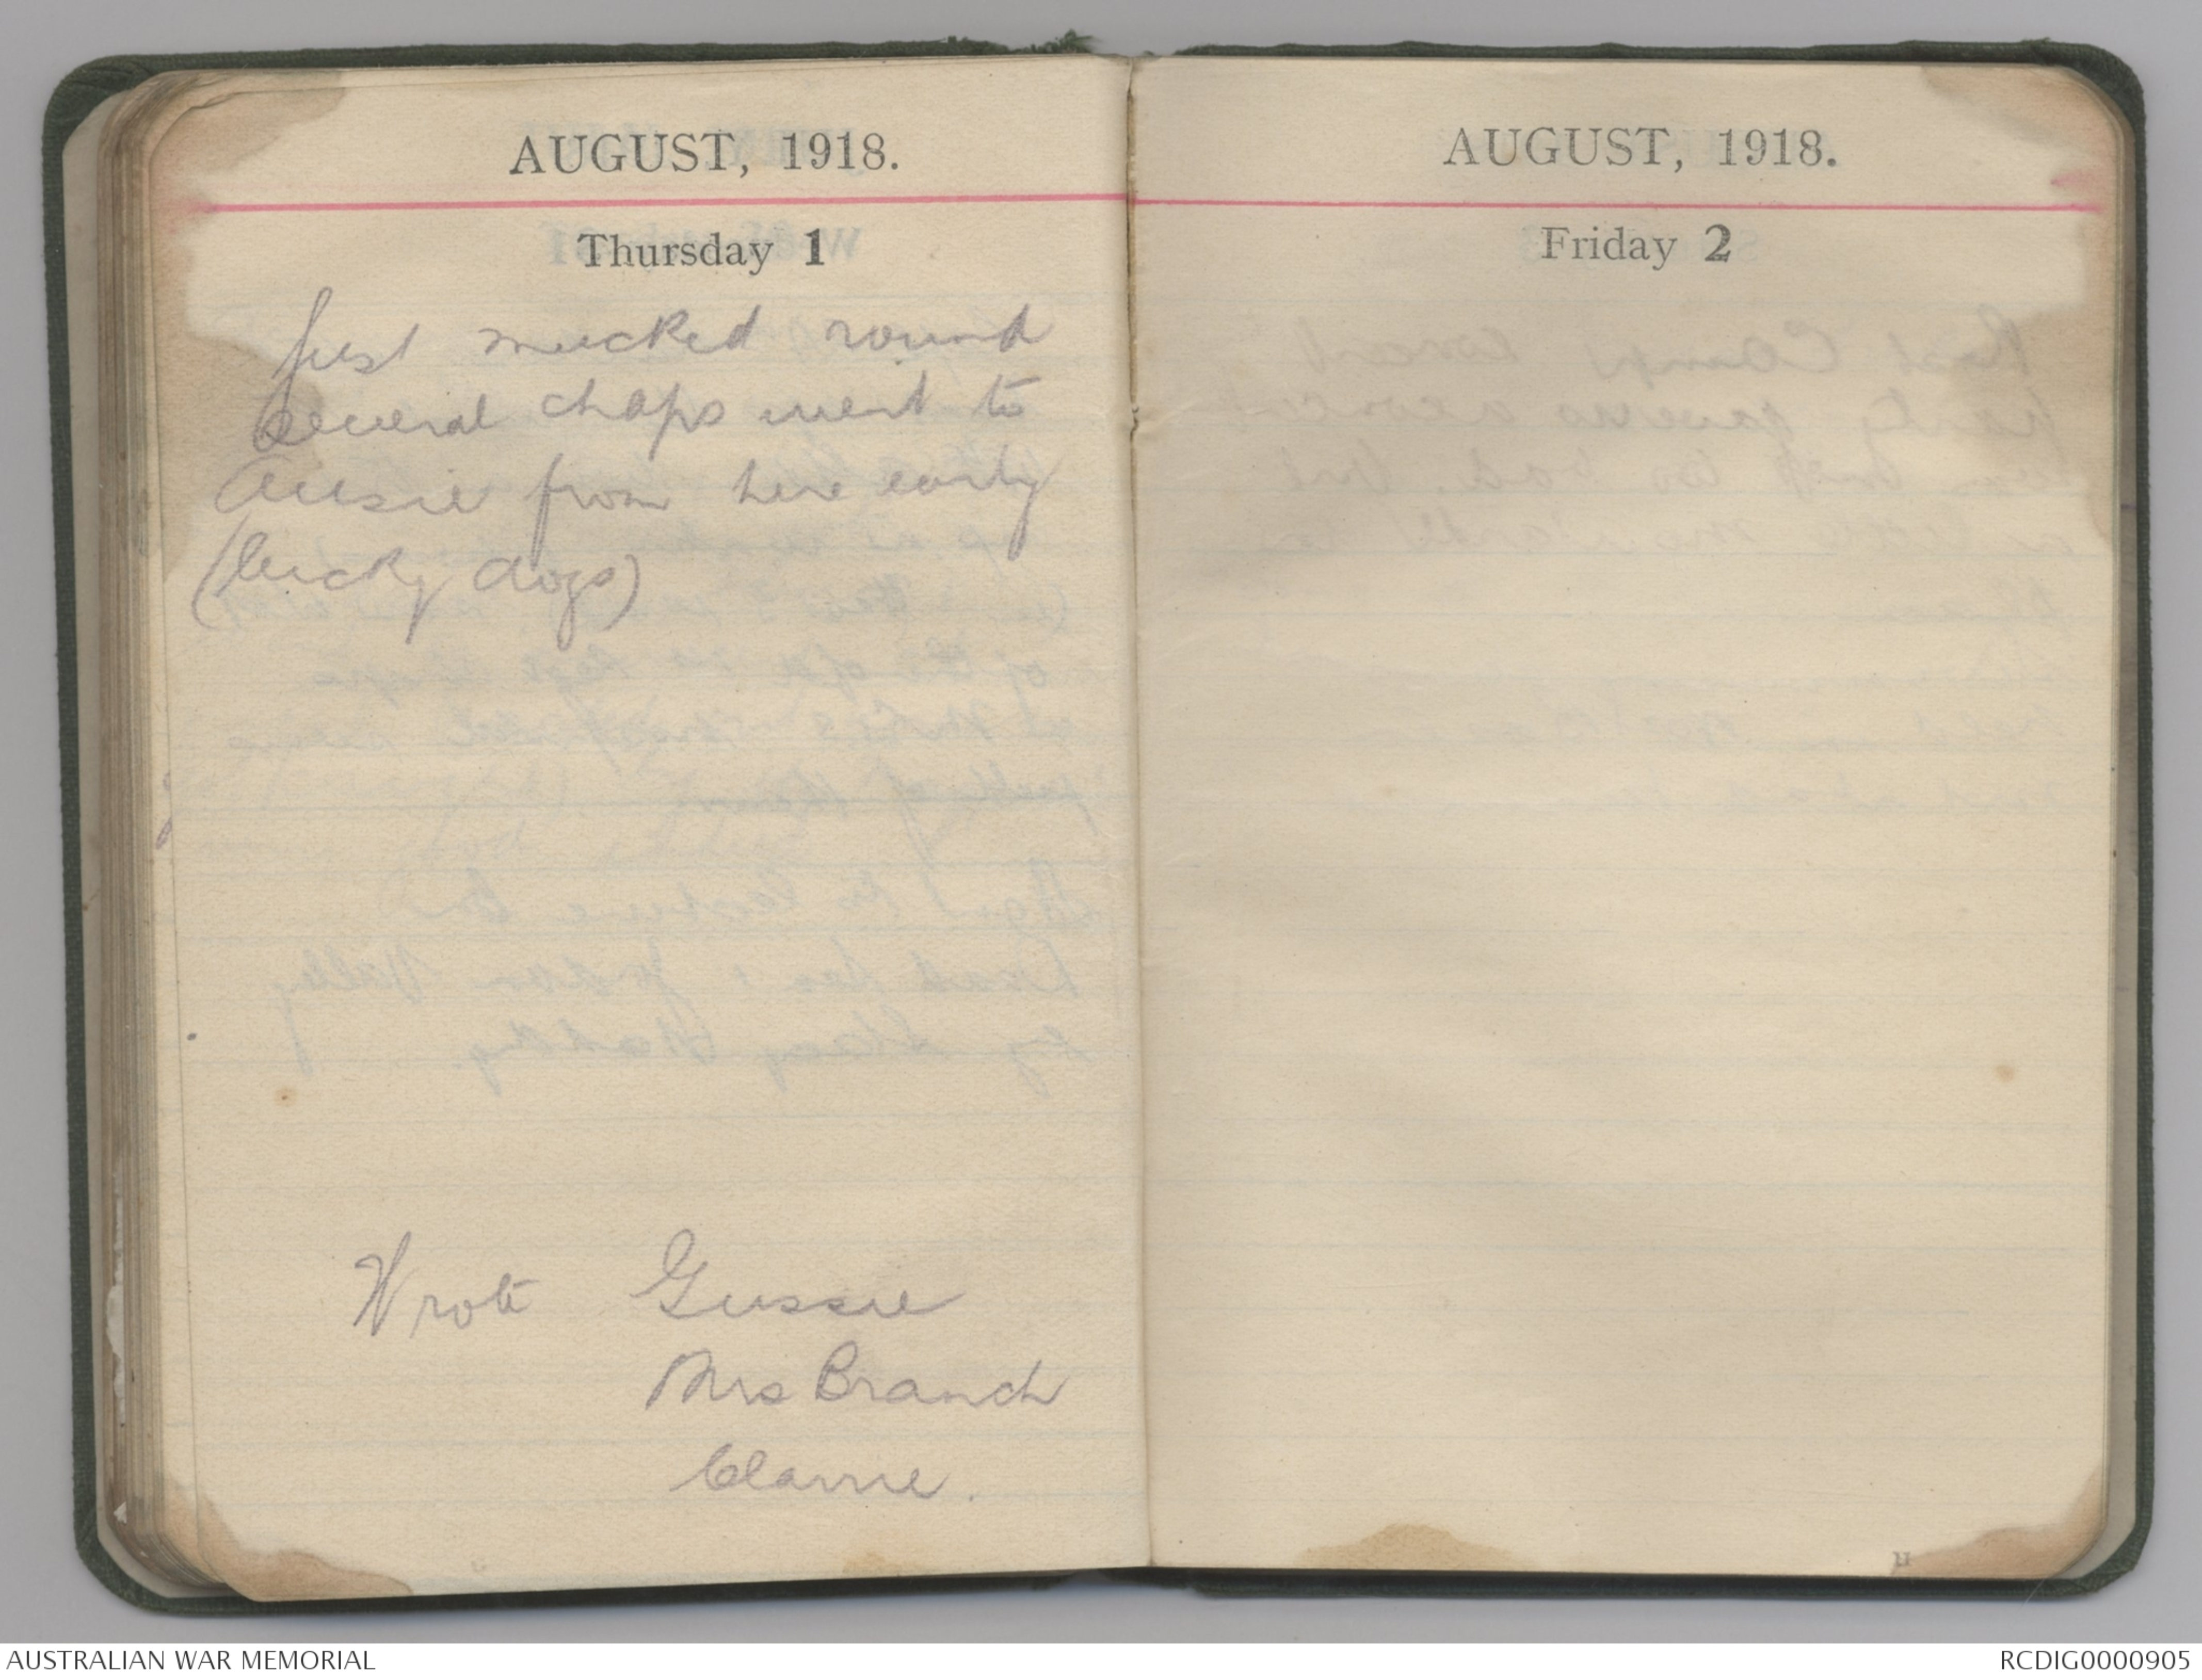 AUGUST, 1918.
Thursday 1
Just mucked round
several chaps went to
Aussie from here early
(lucky dogs)
Wrote Gussie
Mrs Branch
Clarrie.
AUGUST, 1918.
Friday 2
H
AUSTRALIAN WAR MEMORIAL
RCDIG0000905